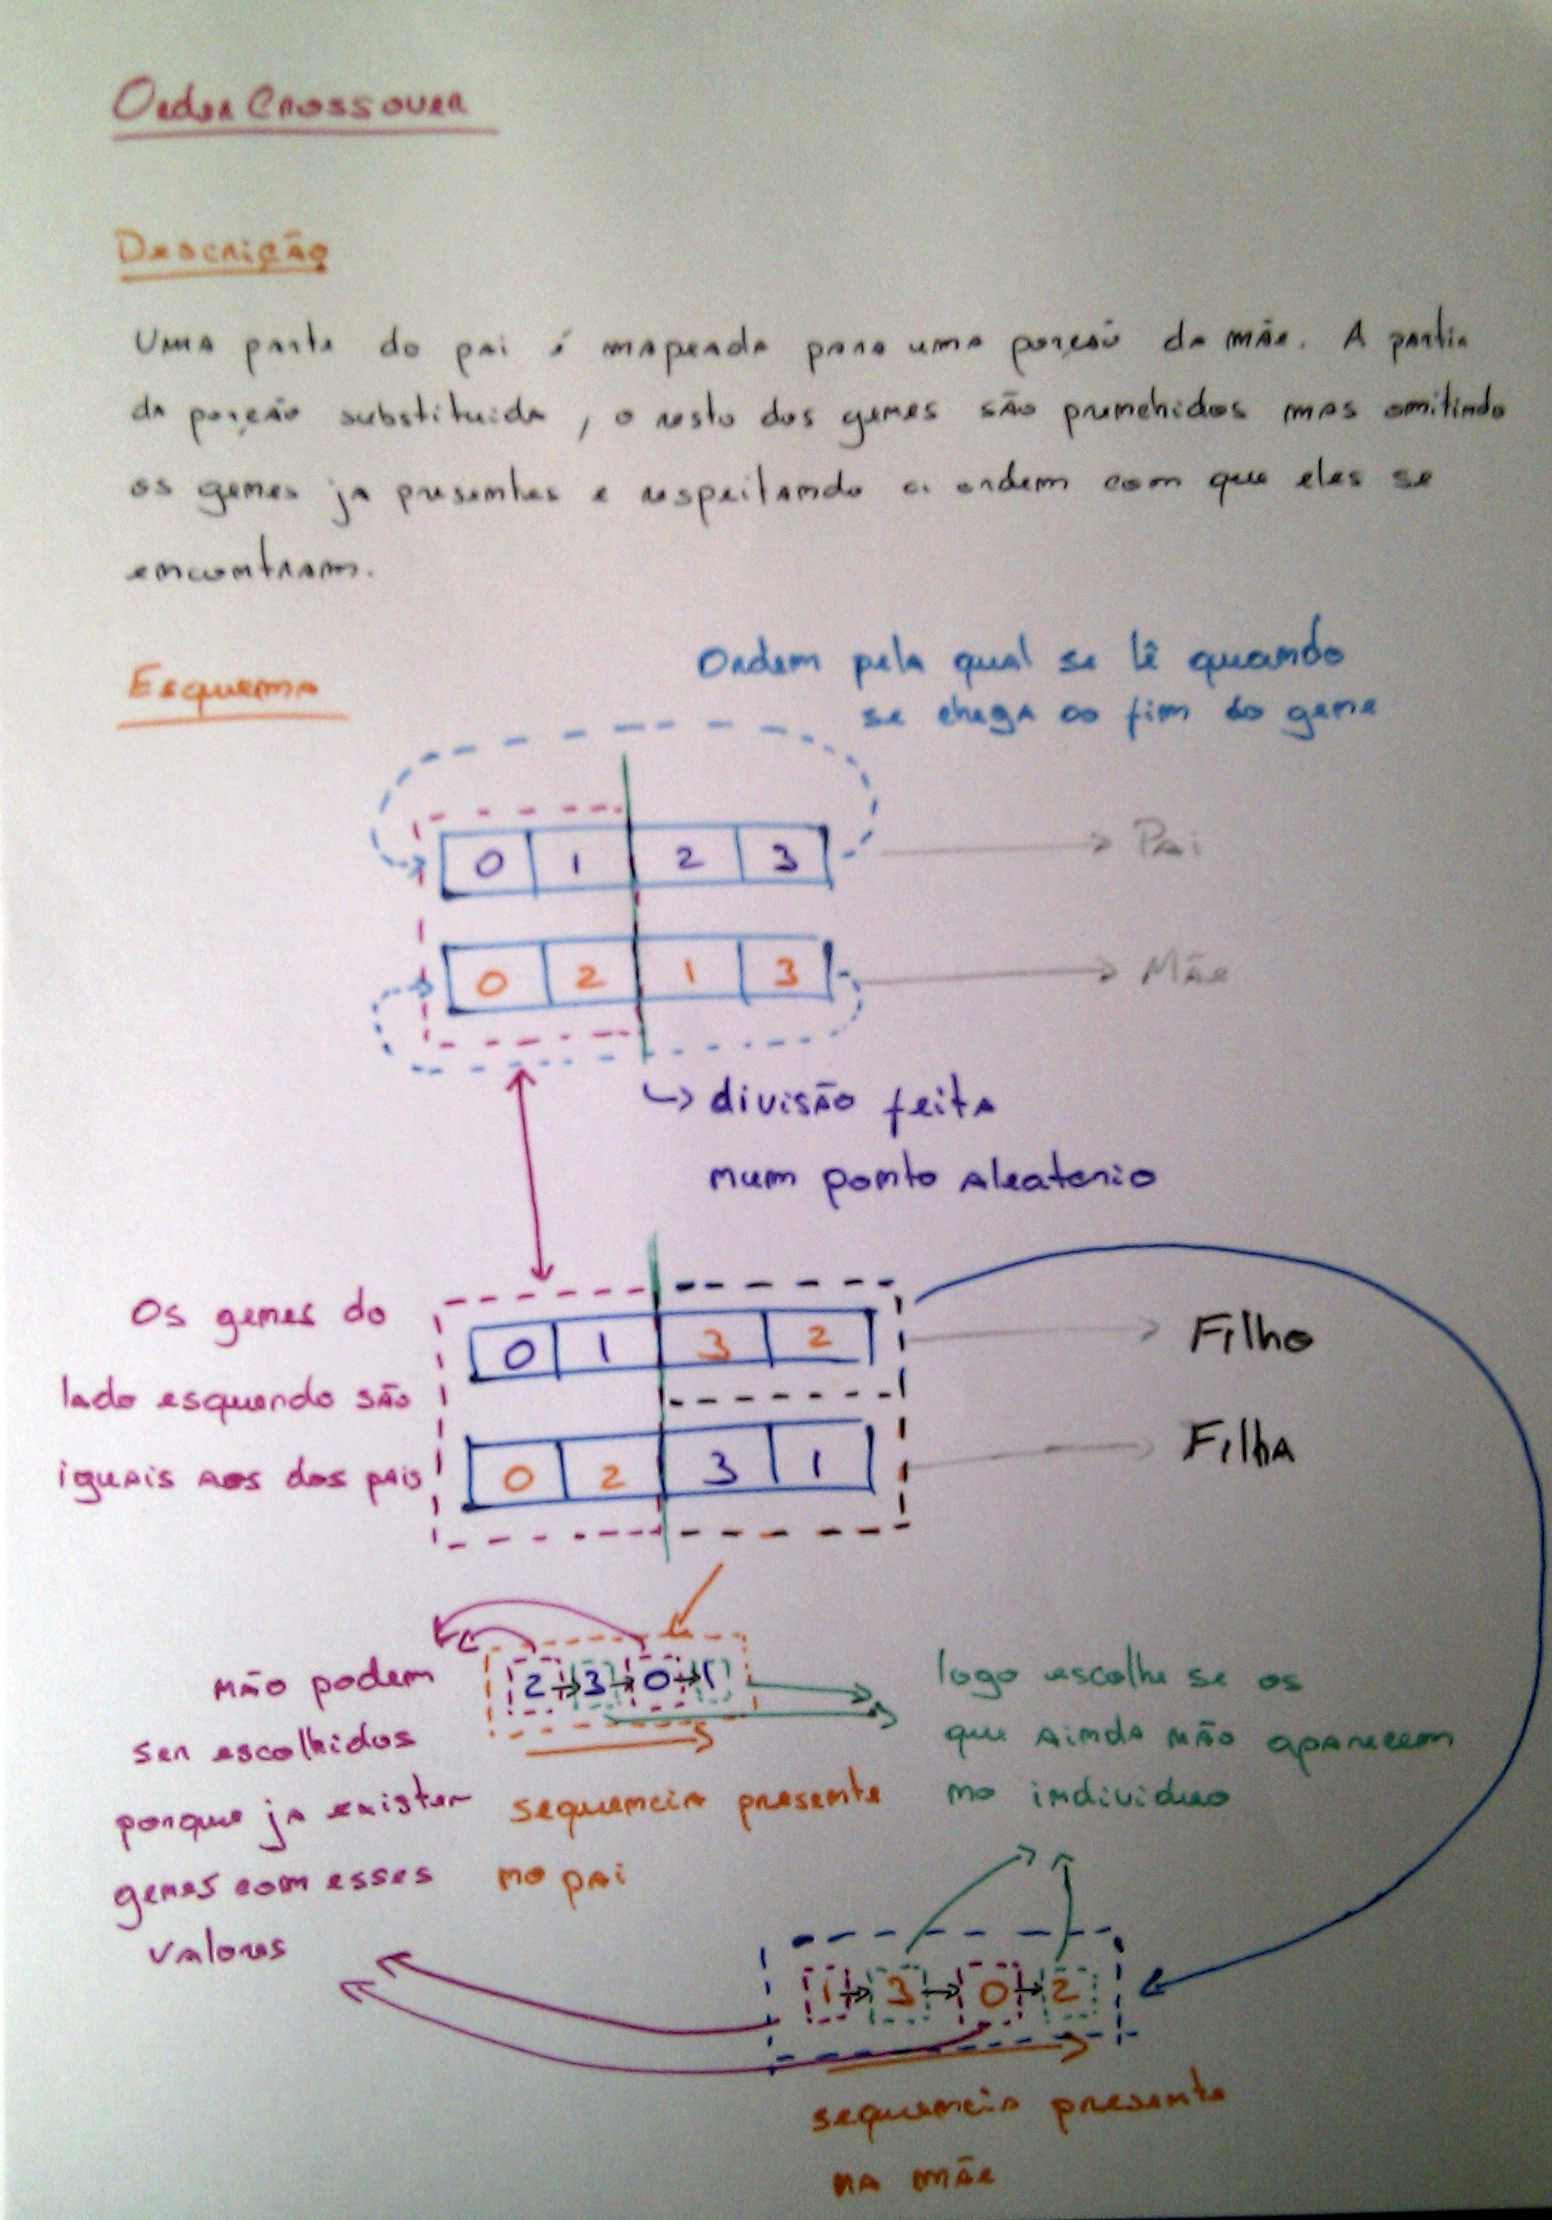 Order Crossover
Descrição
Uma parte do pai é mapeada para uma porção da mãe. A partir
da porção substituida, o resto dos genes são prenchidos mas omitindo
os genes ja presentes e respeitando a ordem com que eles se
encontram.
Esquema
Ordem pela qual se lê quando
se chega ao fim do gene
0 1 2 3
Pai
0 2 1 3
Mãe
↳ divisão feita
num ponto aleatorio
Os genes do
lado esquerdo são
iguais aos dos pais
0 1 3 2
Filho
0 2 3 1
Filha
2 → 3 → 0 → 1
não podem
ser escolhidos
porque ja existem
genes com esses
valores
sequencia presente
no pai
logo escolhe se os
que ainda não aparecem
no individuo
1 → 3 → 0 → 2
sequencia presente
na mãe